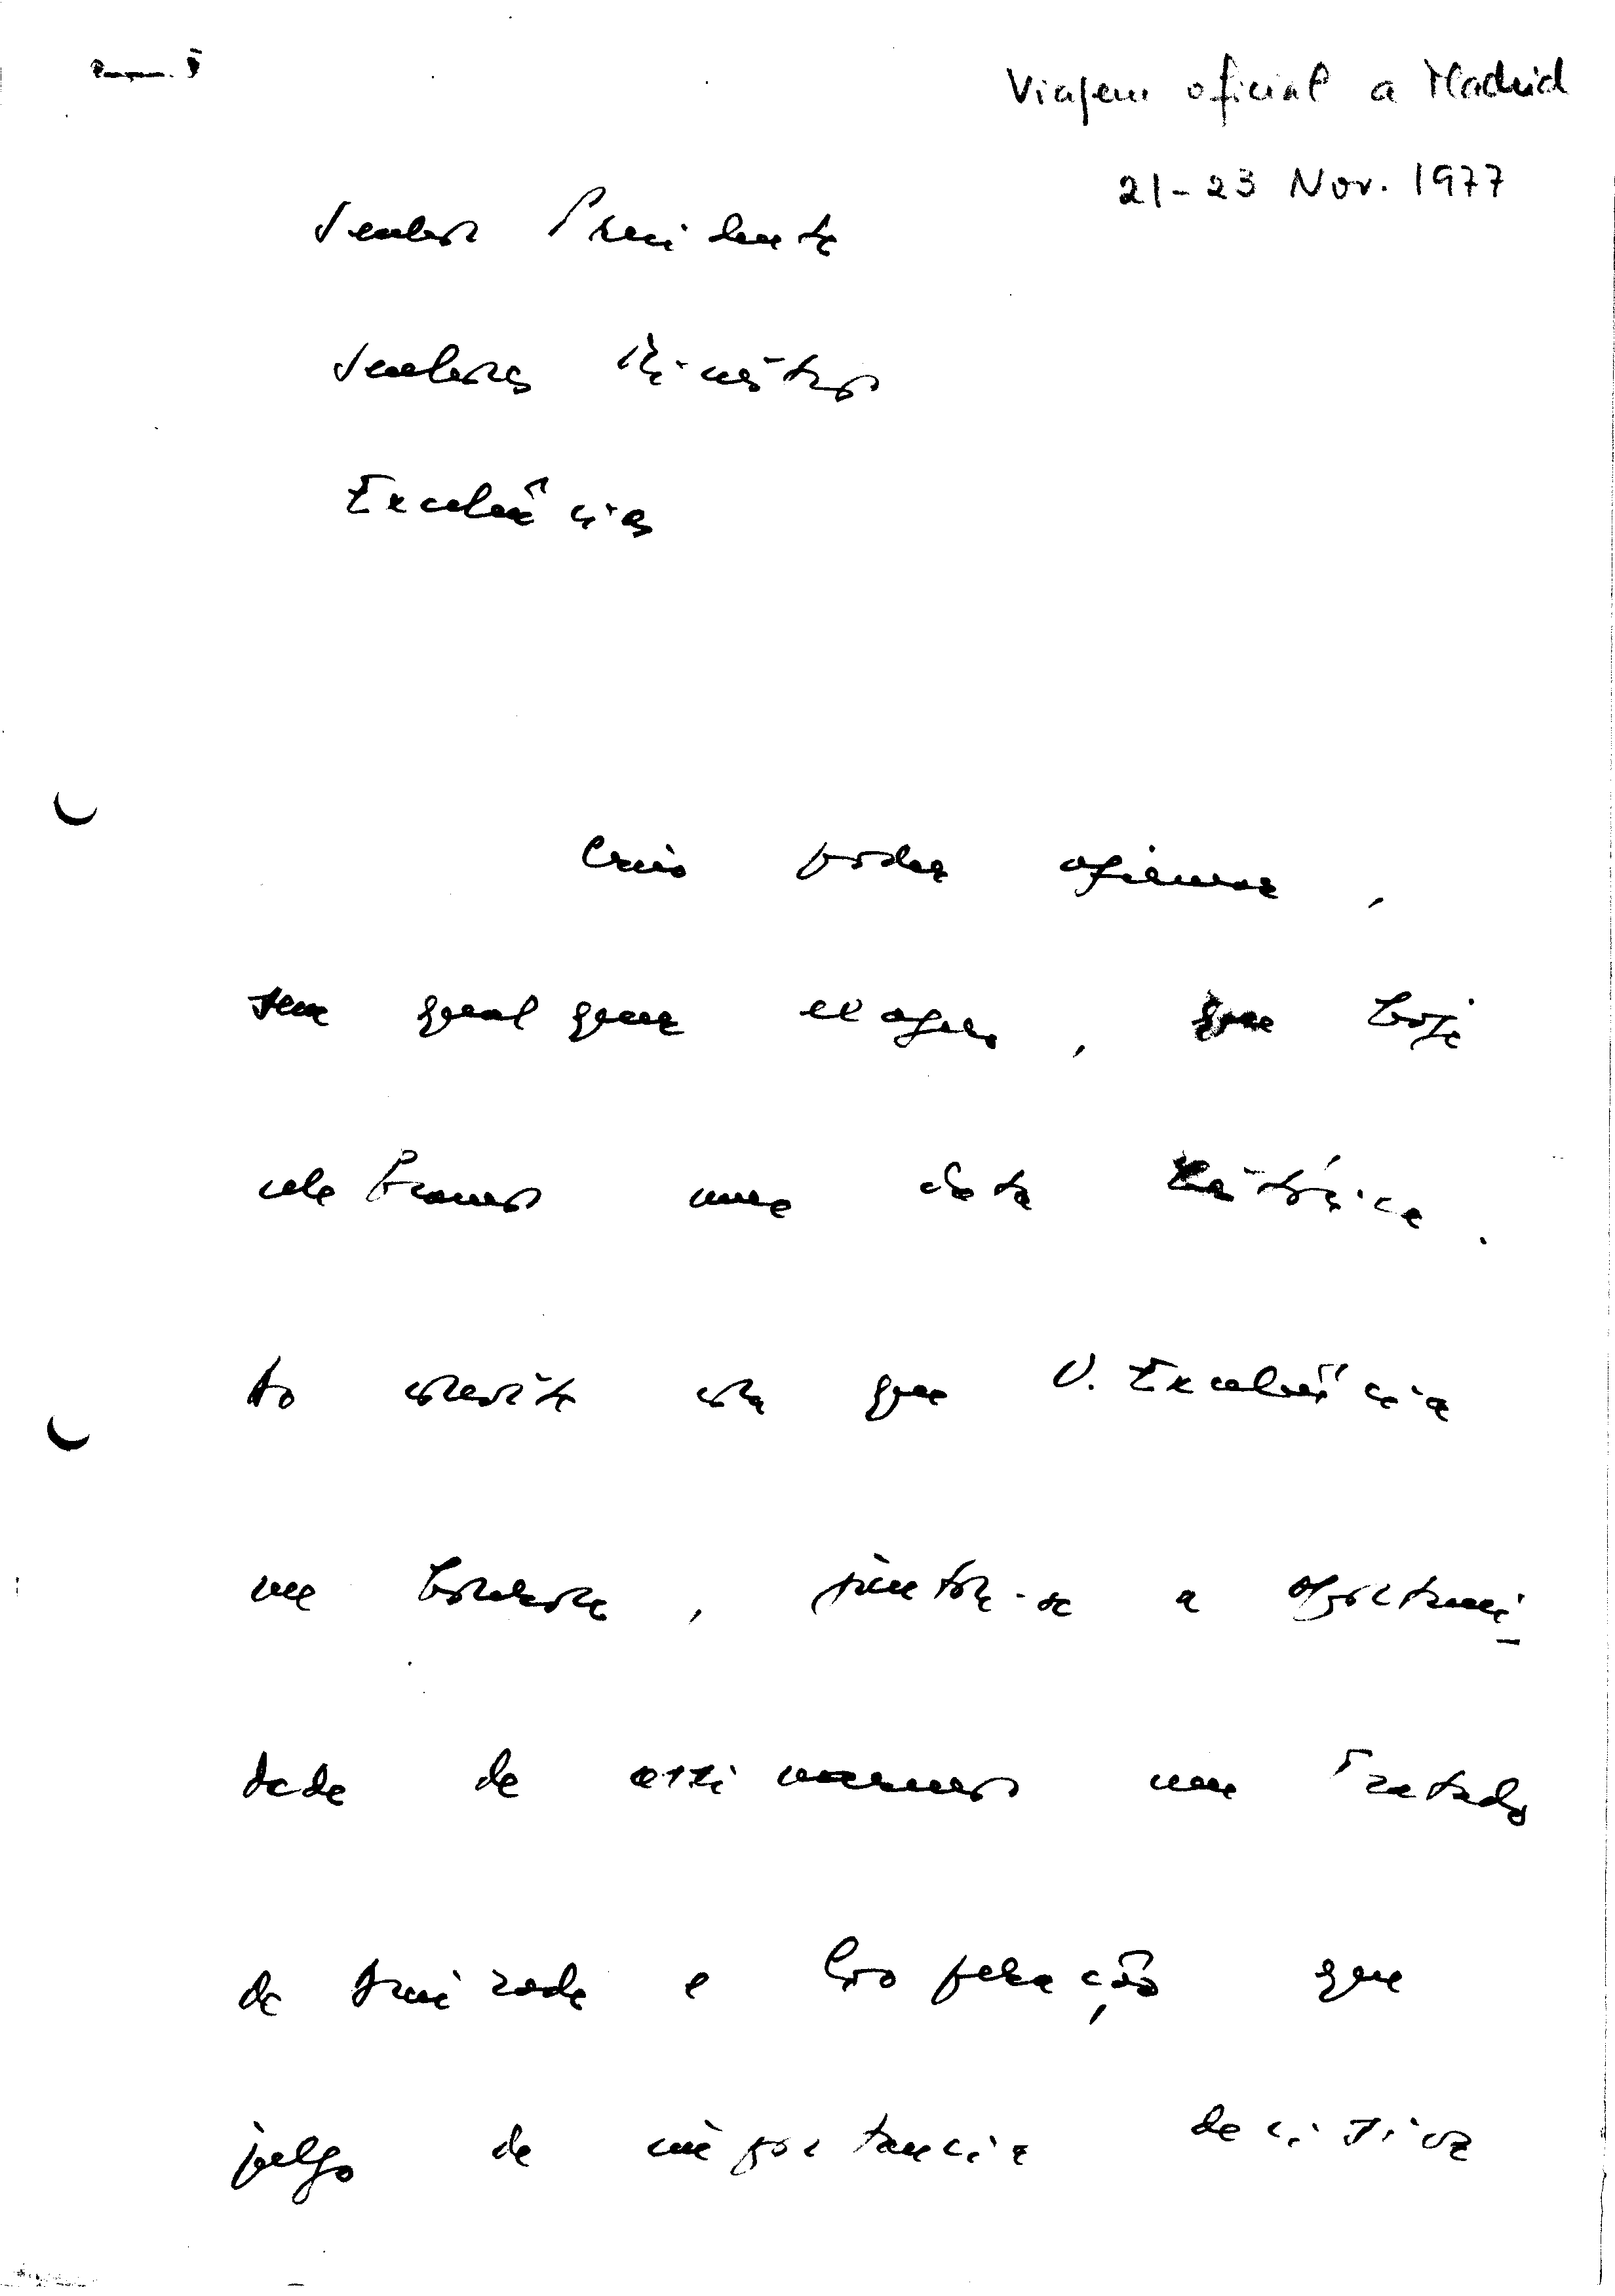 Viagem oficial a Madrid
21-23 Nov. 1977
Senhor Presidente
Senhores Ministros
Excelências
Creio poder afirmar,
sem qualquer exagero, que hoje
celebramos uma data histórica.
Ao convite com que V. Excelência
me honrou, juntou-se a oportuni
dade de assinarmos um Tratado
de Amizade e Cooperação que
julgo de importância decisiva